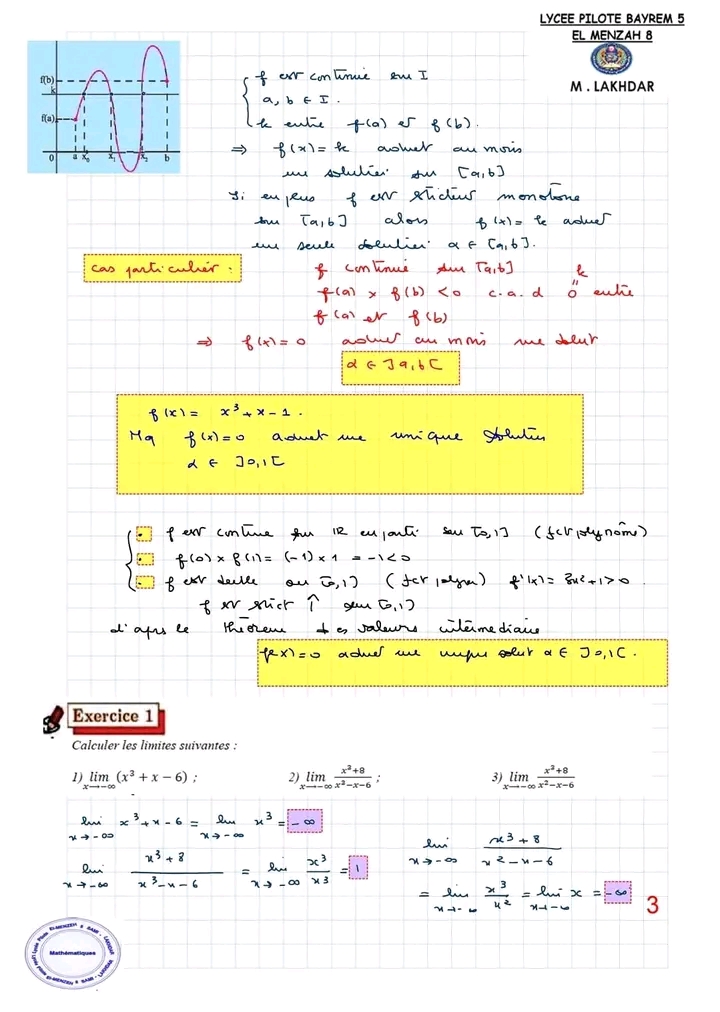 LYCEE PILOTE BAYREM 5
EL MENZAH 8
M . LAKHDAR
f(b)
k
f(a)
0 a x₀ x₁ x₂ b
f est continue sur I
a, b ∈ I .
k entre f(a) et f(b) .
⇒ f(x) = k admet au mois
une solution sur [a,b]
Si en plus f est strictem monotone
sur [a,b] alors f(x) = k admet
une seule solution α ∈ [a,b] .
cas particulier : f continue sur [a,b]
k
"
f(a) × f(b) < 0 c.a.d 0 entre
f(a) et f(b)
⇒ f(x) = 0 admet au mois une solut
α ∈ ]a,b[
f(x) = x³ + x - 1 .
Mq f(x) = 0 admet une unique solution
α ∈ ]0,1[
f est contine sur IR en parti sur [0,1] (fct polynôme)
f(0) × f(1) = (-1) × 1 = -1 < 0
f est [0,1] f'(x) = 3x² + 1 > 0 .
f st strict ↑ sur [0,1]
d'apres le théorem des valeurs intermediaire
f(x) = 0 admet une unique solut α ∈ ]0,1[ .
Exercice 1
Calculer les limites suivantes :
1) lim x→-∞ (x³ + x − 6) ; 2) lim x→-∞ (x³+8)/(x³−x−6) ; 3) lim x→-∞ (x³+8)/(x²−x−6)
lim x→-∞ x³ + x - 6 = lim x→-∞ x³ = -∞
lim x→-∞ (x³ + 8)/(x³ - x - 6) = lim x→-∞ x³/x³ = 1
lim x→-∞ (x³ + 8)/(x² - x - 6)
= lim x→-∞ x³/x² = lim x→-∞ x = -∞
3
Mathématiques